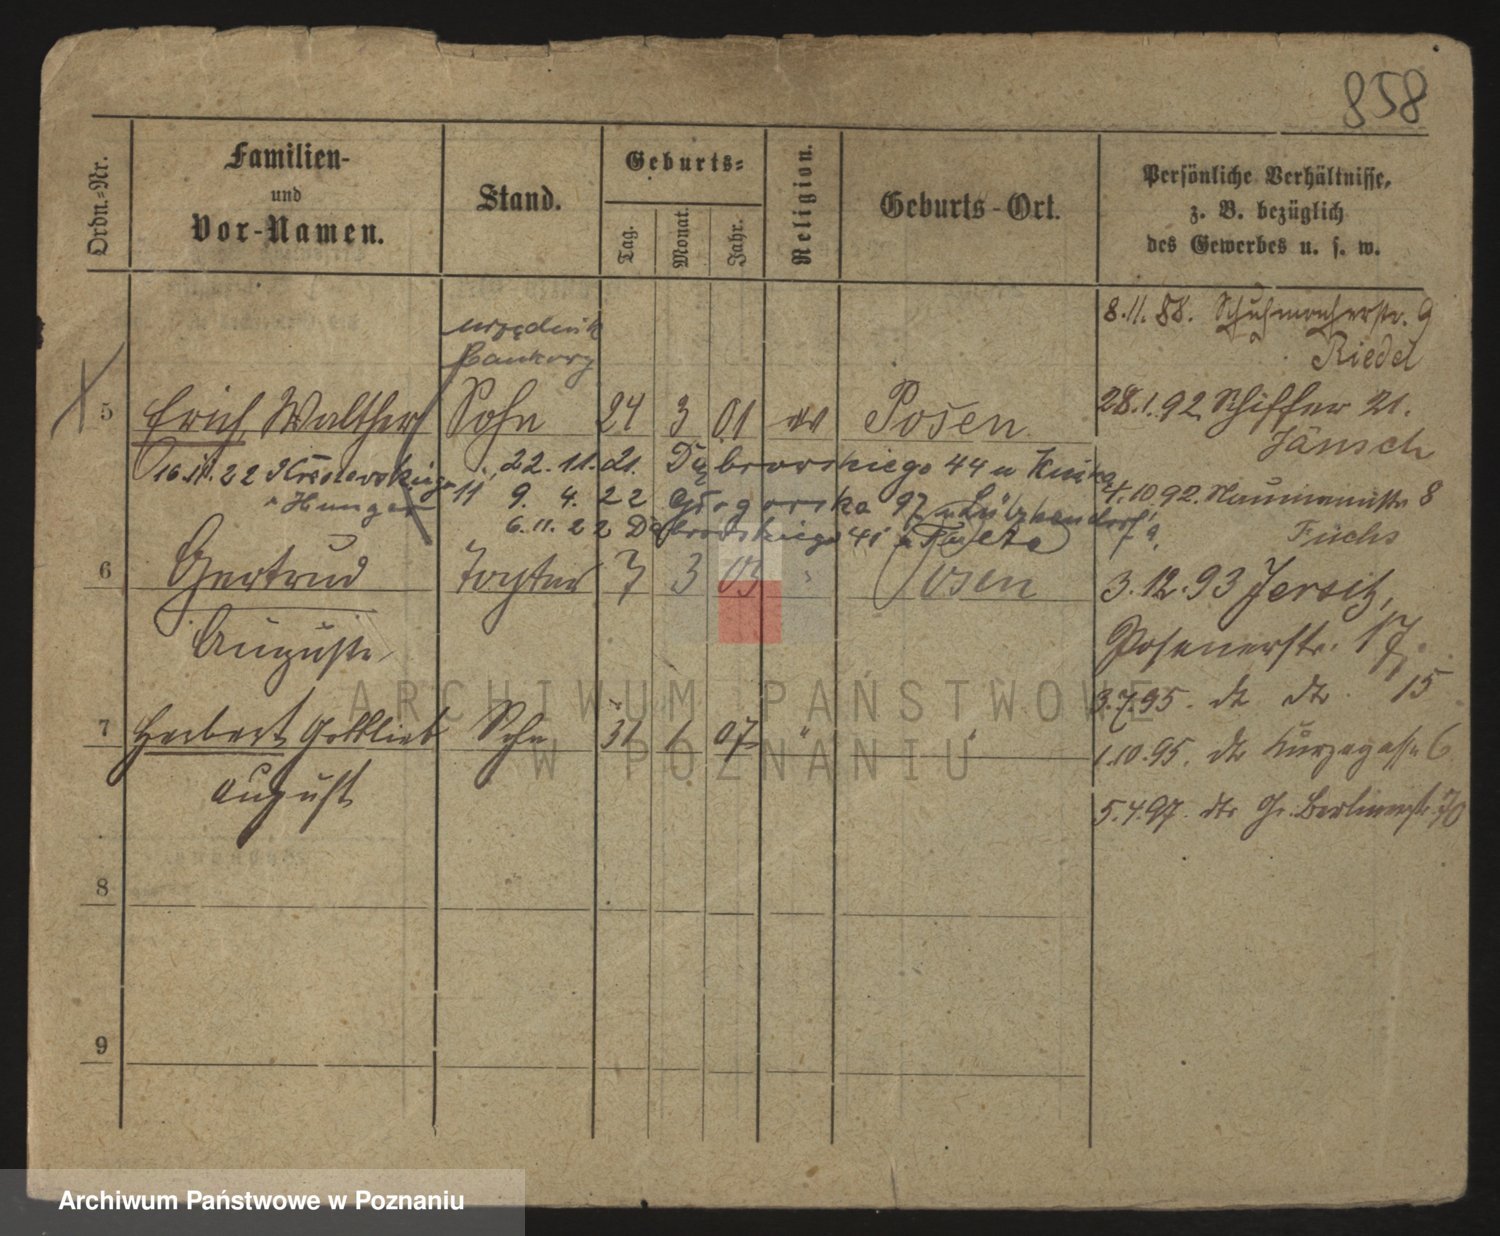 858
Ordn.-Nr.
Familien-
und
Vor-Namen.
Stand.
Geburts-
Tag.
Monat.
Jahr.
Religion.
Geburts-Ort.
Persönliche Verhältnisse,
z. B. bezüglich
des Gewerbes u. s. w.
8.11.88. Schuhmacherstr. 9
Riedel
urzędnik
bankowy
5 Erich Walther Sohn 24 3 01 ev Posen
28.1.92 Schiffer 21.
Jänsch
22.11.21. Dąbrowskiego 44 u
16.11.22
u Hunger
9. 4. 22 97 u
4.10.92. Naumannstr 8
Fuchs
6.11.22 Dąbrowskiego 41 u
6 Gertrud Tochter 7 3 03 " Posen
Auguste
3.12.93 Jersitz,
Posenerstr. 17.
3.7.95. do do 15
7 Herbert Gottlieb Sohn 31 1 07 " "
August
1.10.95. do Kurzegasse 6
5.4.97. do Gr. Berlinerstr. 70
8
9
ARCHIWUM PAŃSTWOWE
W POZNANIU
Archiwum Państwowe w Poznaniu